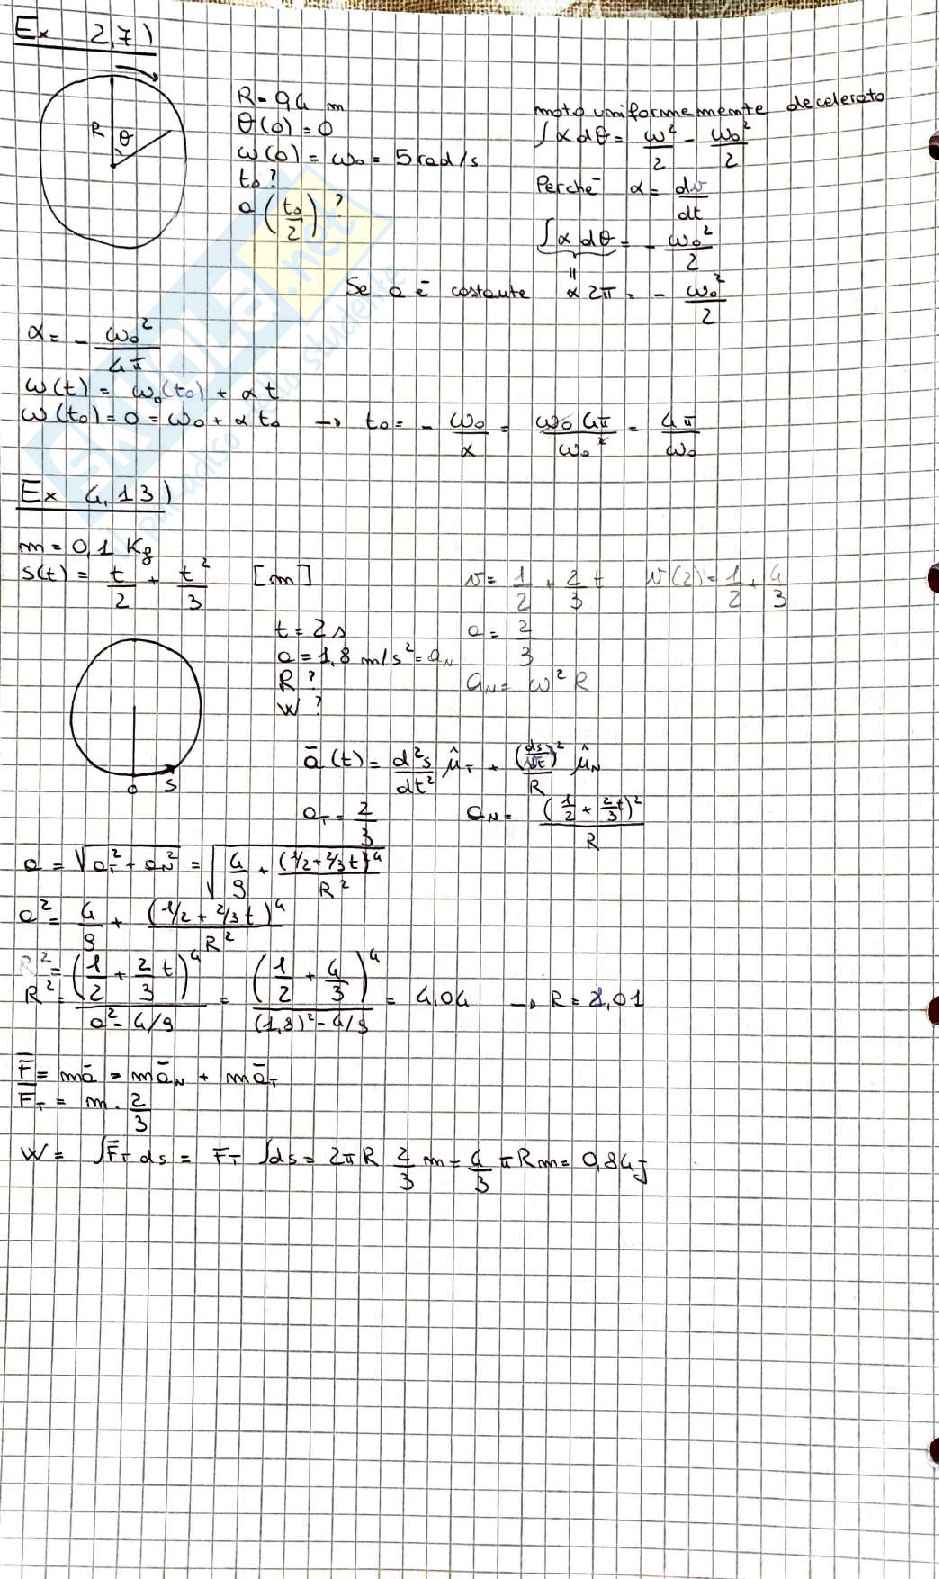 Ex 2,7)
R = 0,4 m
θ(0) = 0
ω(0) = ω₀ = 5 rad/s
t₀?
a(t₀/2)?
R θ
moto uniformemente decelerato
∫α dθ = ω²/2 - ω₀²/2
Perché α = dv/dt
∫α dθ = - ω₀²/2
Se a è costante α 2π = - ω₀²/2
α = - ω₀²/4π
ω(t) = ω₀(t₀) + αt
ω(t₀) = 0 = ω₀ + αt₀ → t₀ = - ω₀/α = ω₀ 4π/ω₀² = 4π/ω₀
Ex 4,13)
m = 0,1 Kg
s(t) = t/2 + t²/3 [m]
v = 1/2 + 2/3 t v(2) = 1/2 + 4/3
t = 2s
a = 2/3
a = 1,8 m/s² = a_N
R?
a_N = ω²R
W?
0 S
ā(t) = d²s/dt² û_T + (ds/dt)²/R û_N
a_T = 2/3 a_N = (1/2 + 2/3 t)²/R
a = √(a_T² + a_N²) = √(4/9 + (1/2 + 2/3 t)⁴/R²)
a² = 4/9 + (1/2 + 2/3 t)⁴/R²
R² =
R² = (1/2 + 2/3 t)⁴/(a² - 4/9) = (1/2 + 4/3)⁴/((1,8)² - 4/9) = 4,04 → R = 2,01
F̄ = mā = mā_N + mā_T
F̄_T = m · 2/3
W = ∫F̄_T ds = F_T ∫ds = 2πR 2/3 m = 4/3 πRm = 0,84 J